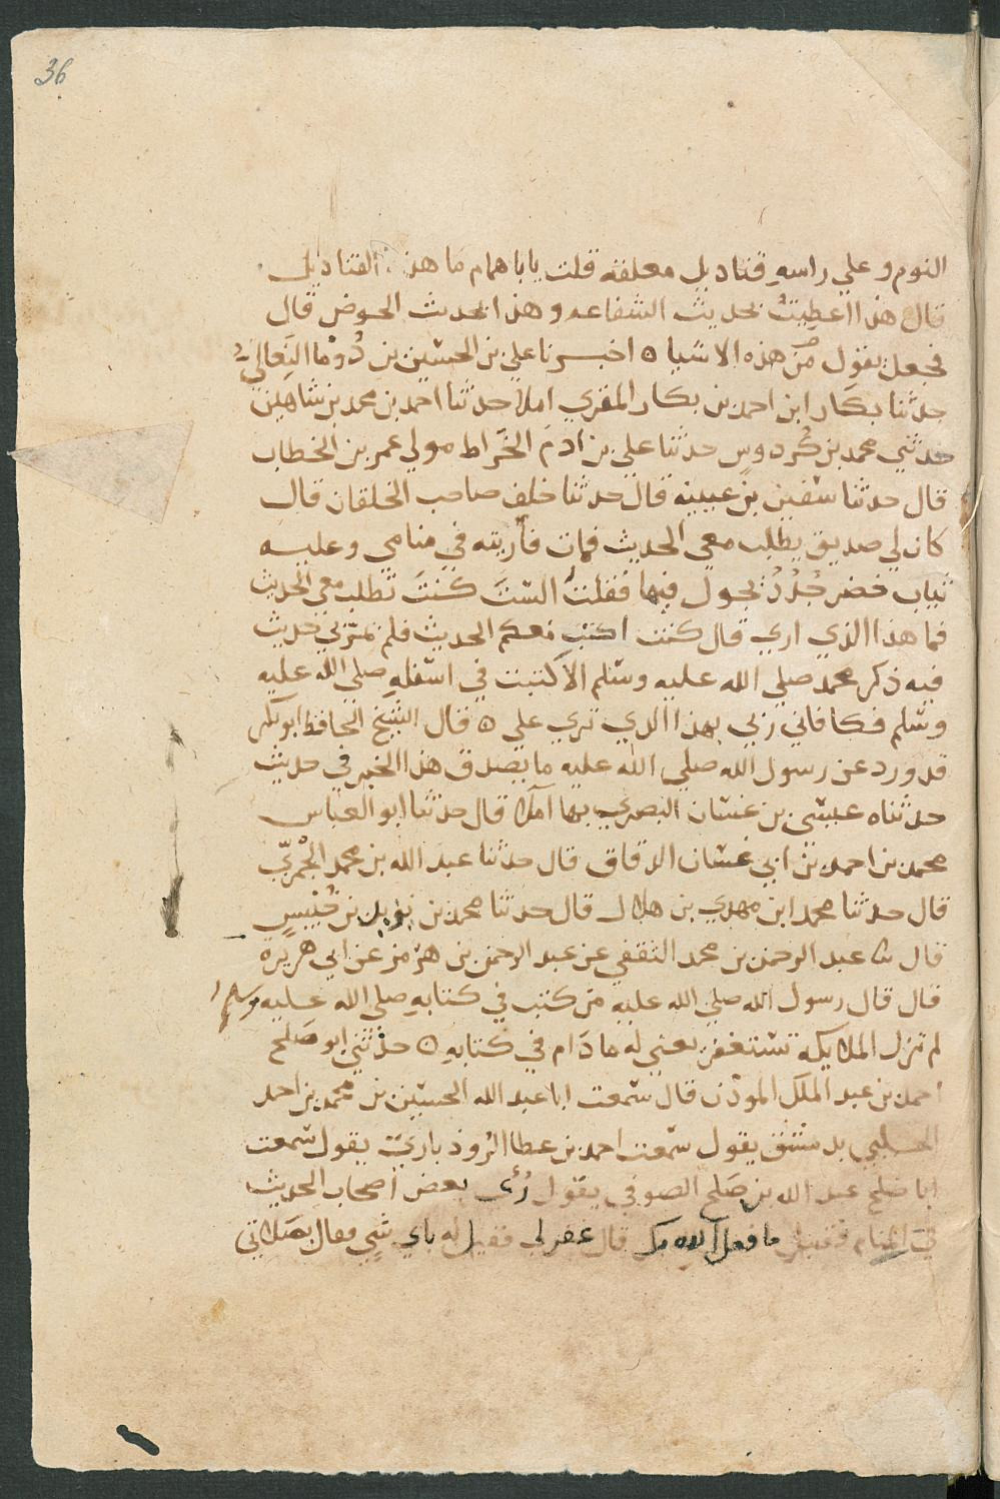 36
النوم وعلي راسه قناديل معلقة قلت يابا همام ما هذه القناديل
قال هذا اعطيته بحديث الشفاعه وهذا بحديث الحوض قال
فجعل يقول من هذه الاشيا ه اخبرنا علي بن الحسين بن دوما النعالي
حدثنا بكار ابن احمد بن بكار المقري املا حدثنا احمد بن محمد بن شاهين
حدثني محمد بن كردوس حدثنا علي بن ادم الخراط مولي عمر بن الخطاب
قال حدثنا سفين بن عيينه قال حدثنا خلف صاحب الخلقان قال
كان لي صديق يطلب معي الحديث فمات فأريته في منامي وعليه
ثياب خضر جدد يجول فيها فقلت الست كنت تطلب معي الحديث
فما هذا الذي اري قال كنت اكتب معكم الحديث فلم يمر بي حديث
فيه ذكر محمد صلي الله عليه وسلم الا كتبت في اسفله صلي الله عليه
وسلم فكافاني ربي بهذا الذي تري علي ه قال الشيخ الحافظ ابو بكر
قد ورد عن رسول الله صلي الله عليه ما يصدق هذا الخبر في حديث
حدثناه عيسى بن غسان البصري بها املا قال حدثنا ابو العباس
محمد بن احمد بن ابي غسان الدقاق قال حدثنا عبد الله بن محمد الجمري
قال حدثنا محمد ابن مهدي بن هلال قال حدثنا محمد بن يزيد بن خنيس
قال ثنا عبد الرحمن بن محمد الثقفي عن عبد الرحمن بن هرمز عن ابي هريره
قال قال رسول الله صلي الله عليه من كتب في كتابه صلي الله عليه وسلم
لم تزل الملايكه تستغفر يعني له ما دام في كتابه ه حدثني ابو صلح
احمد بن عبد الملك الموذن قال سمعت ابا عبد الله الحسين بن محمد بن احمد
الحلبي بدمشق يقول سمعت احمد بن عطا الروذباري يقول سمعت
ابا صلح عبد الله بن صلح الصوفي يقول رُئى بعض اصحاب الحديث
في المنام فقيل ما فعل الله بك قال غفر لى فقيل له باي شي فقال بصلاتي